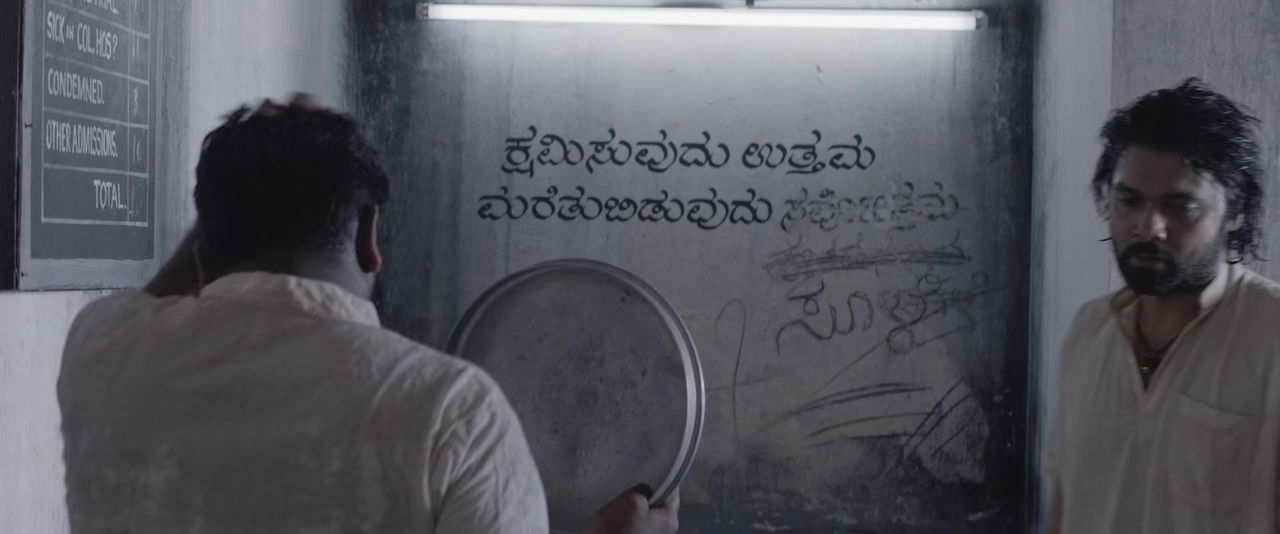 SICK IN COL. HOS?
CONDEMNED.
OTHER ADMISSIONS.
TOTAL.
ಕ್ಷಮಿಸುವುದು ಉತ್ತಮ
ಮರೆತುಬಿಡುವುದು